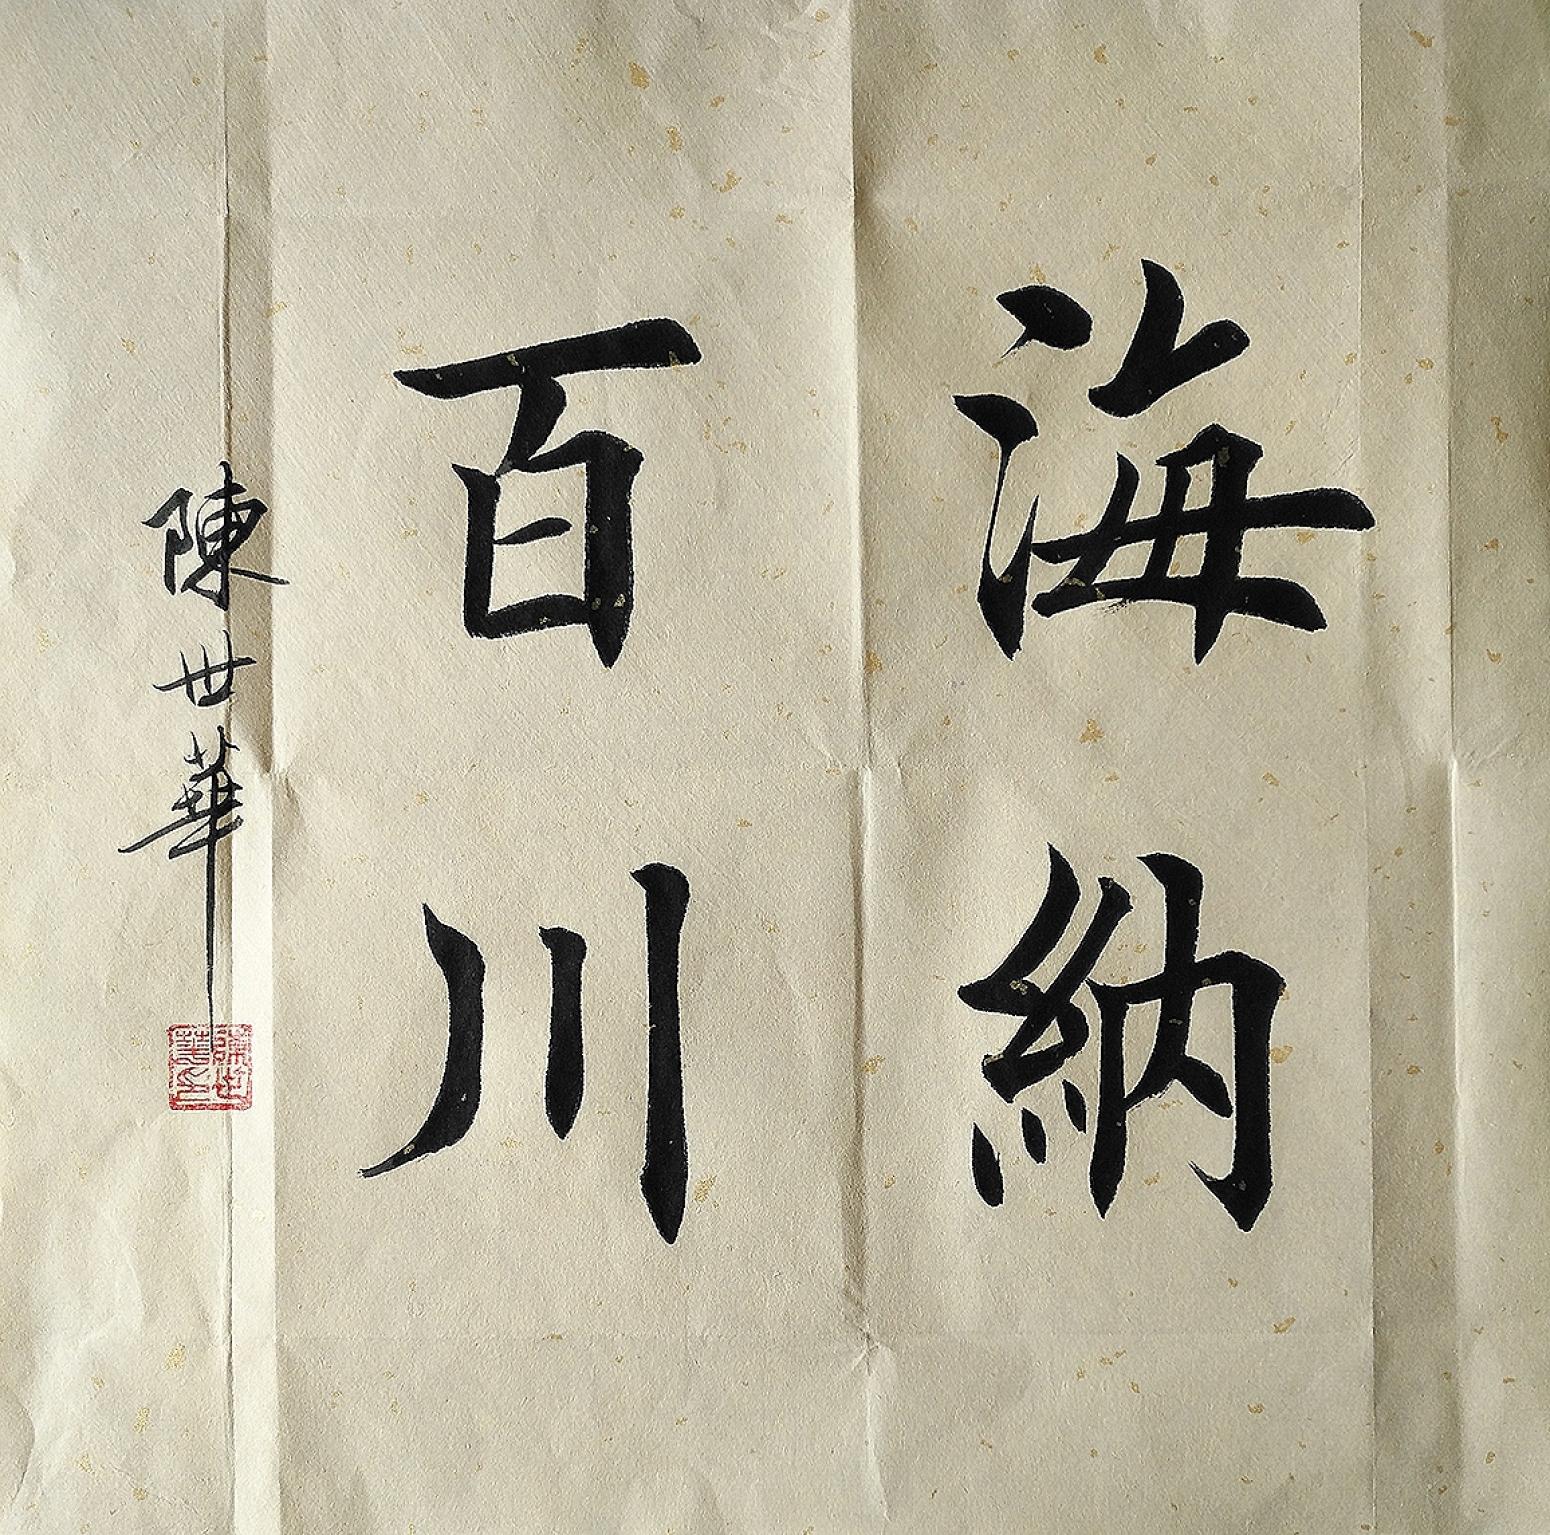 海納
百川
陳世華